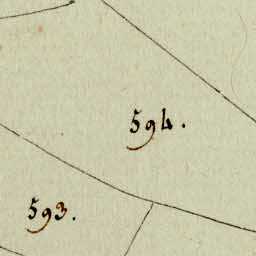 594.
593.